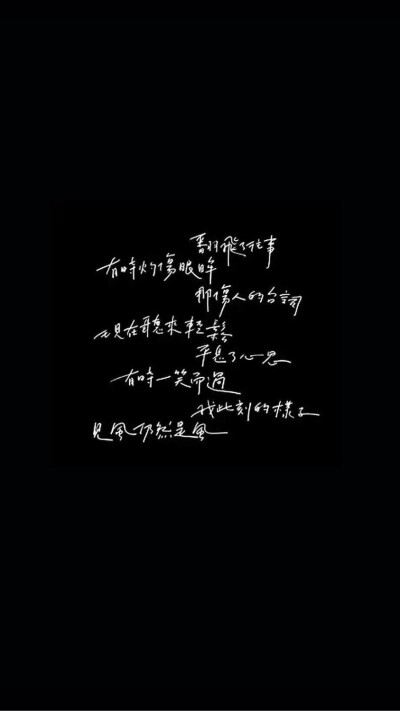 翻飛了往事
有時灼傷眼眸
那傷人的台詞
現在聽來輕鬆
平息了心思
有時一笑而過
我此刻的樣子
見風仍然是風